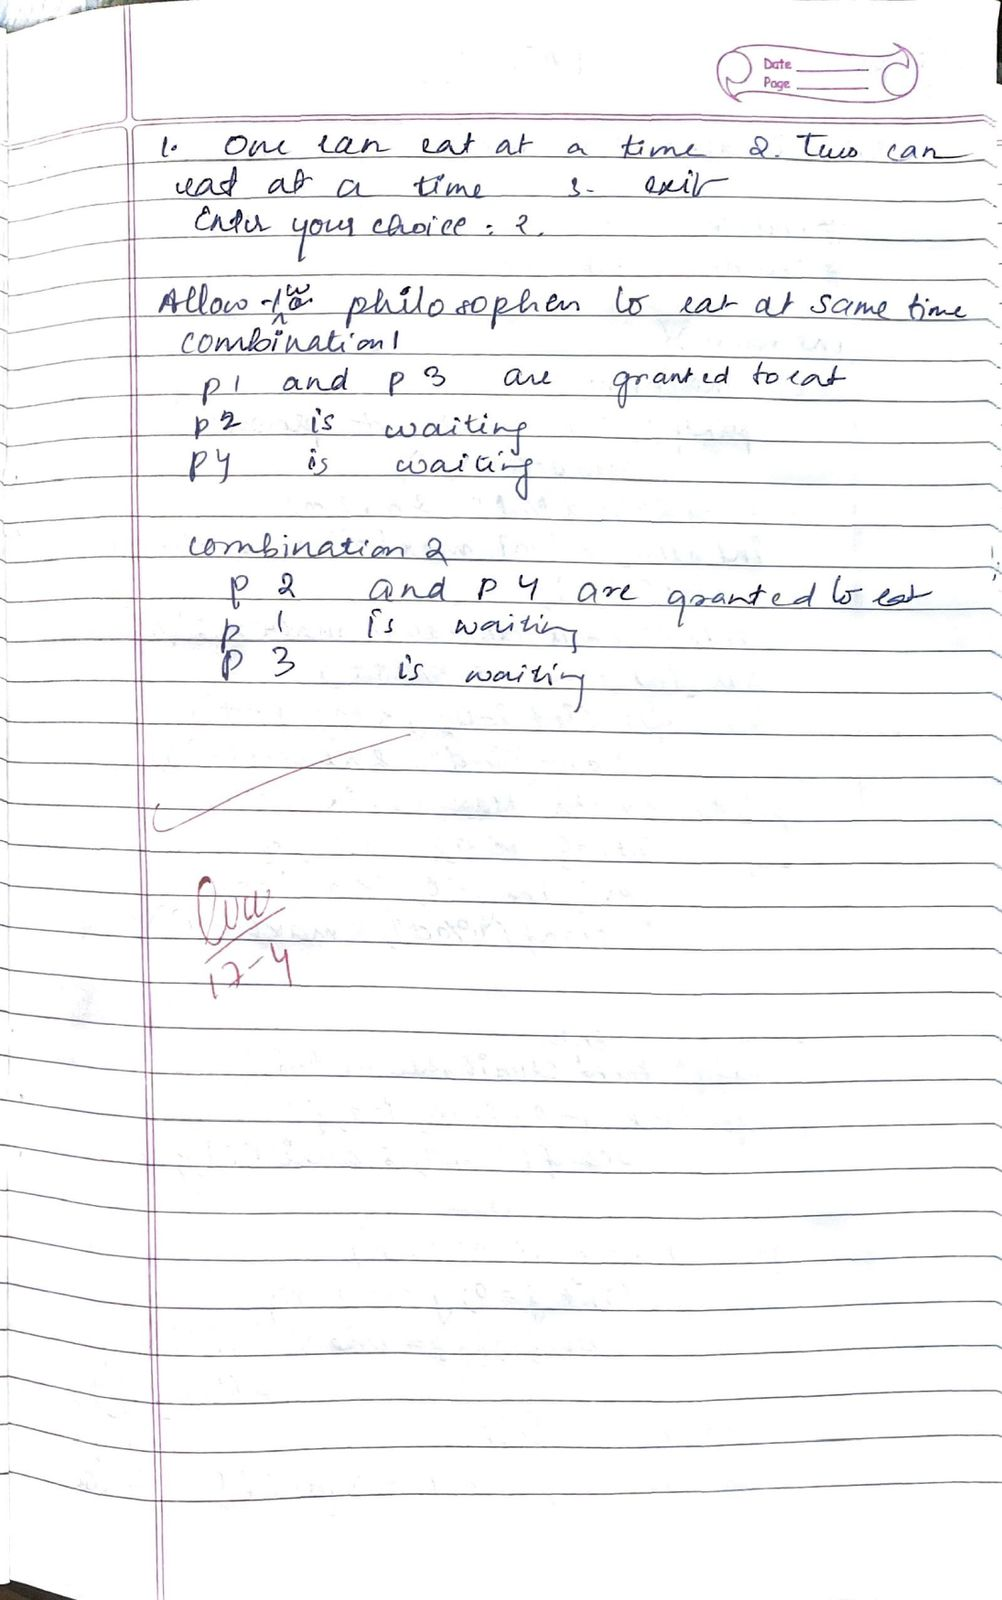 Date
Page
1. One can eat at a time 2. Two can
eat at a time 3. exit
Enter your choice : 2.
Allow two philosophers to eat at same time
combination 1
p1 and p3 are granted to eat
p2 is waiting
p4 is waiting
combination 2
p 2 and p 4 are granted to eat
p 1 is waiting
p 3 is waiting
17-4